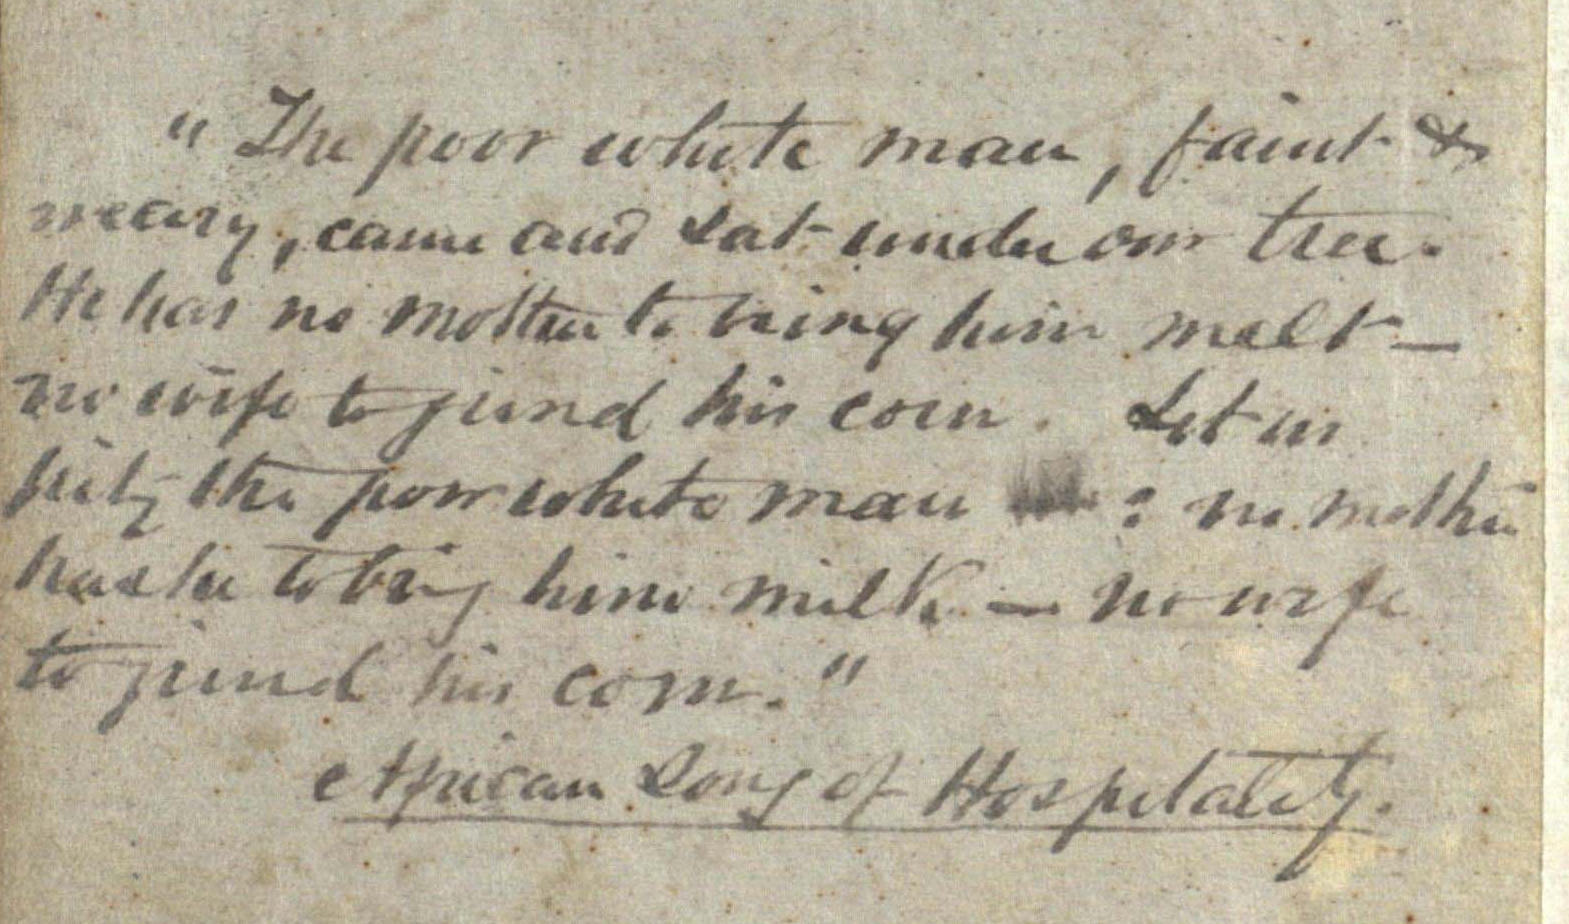 "The poor white man, faint &
weary, came and sat under our tree.
He has no mother to bring him melt —
no wife to grind his corn. Let us
pity the poor white man : no mother
has he to bring him milk — no wife
to grind his corn."
African Song of Hospitality.